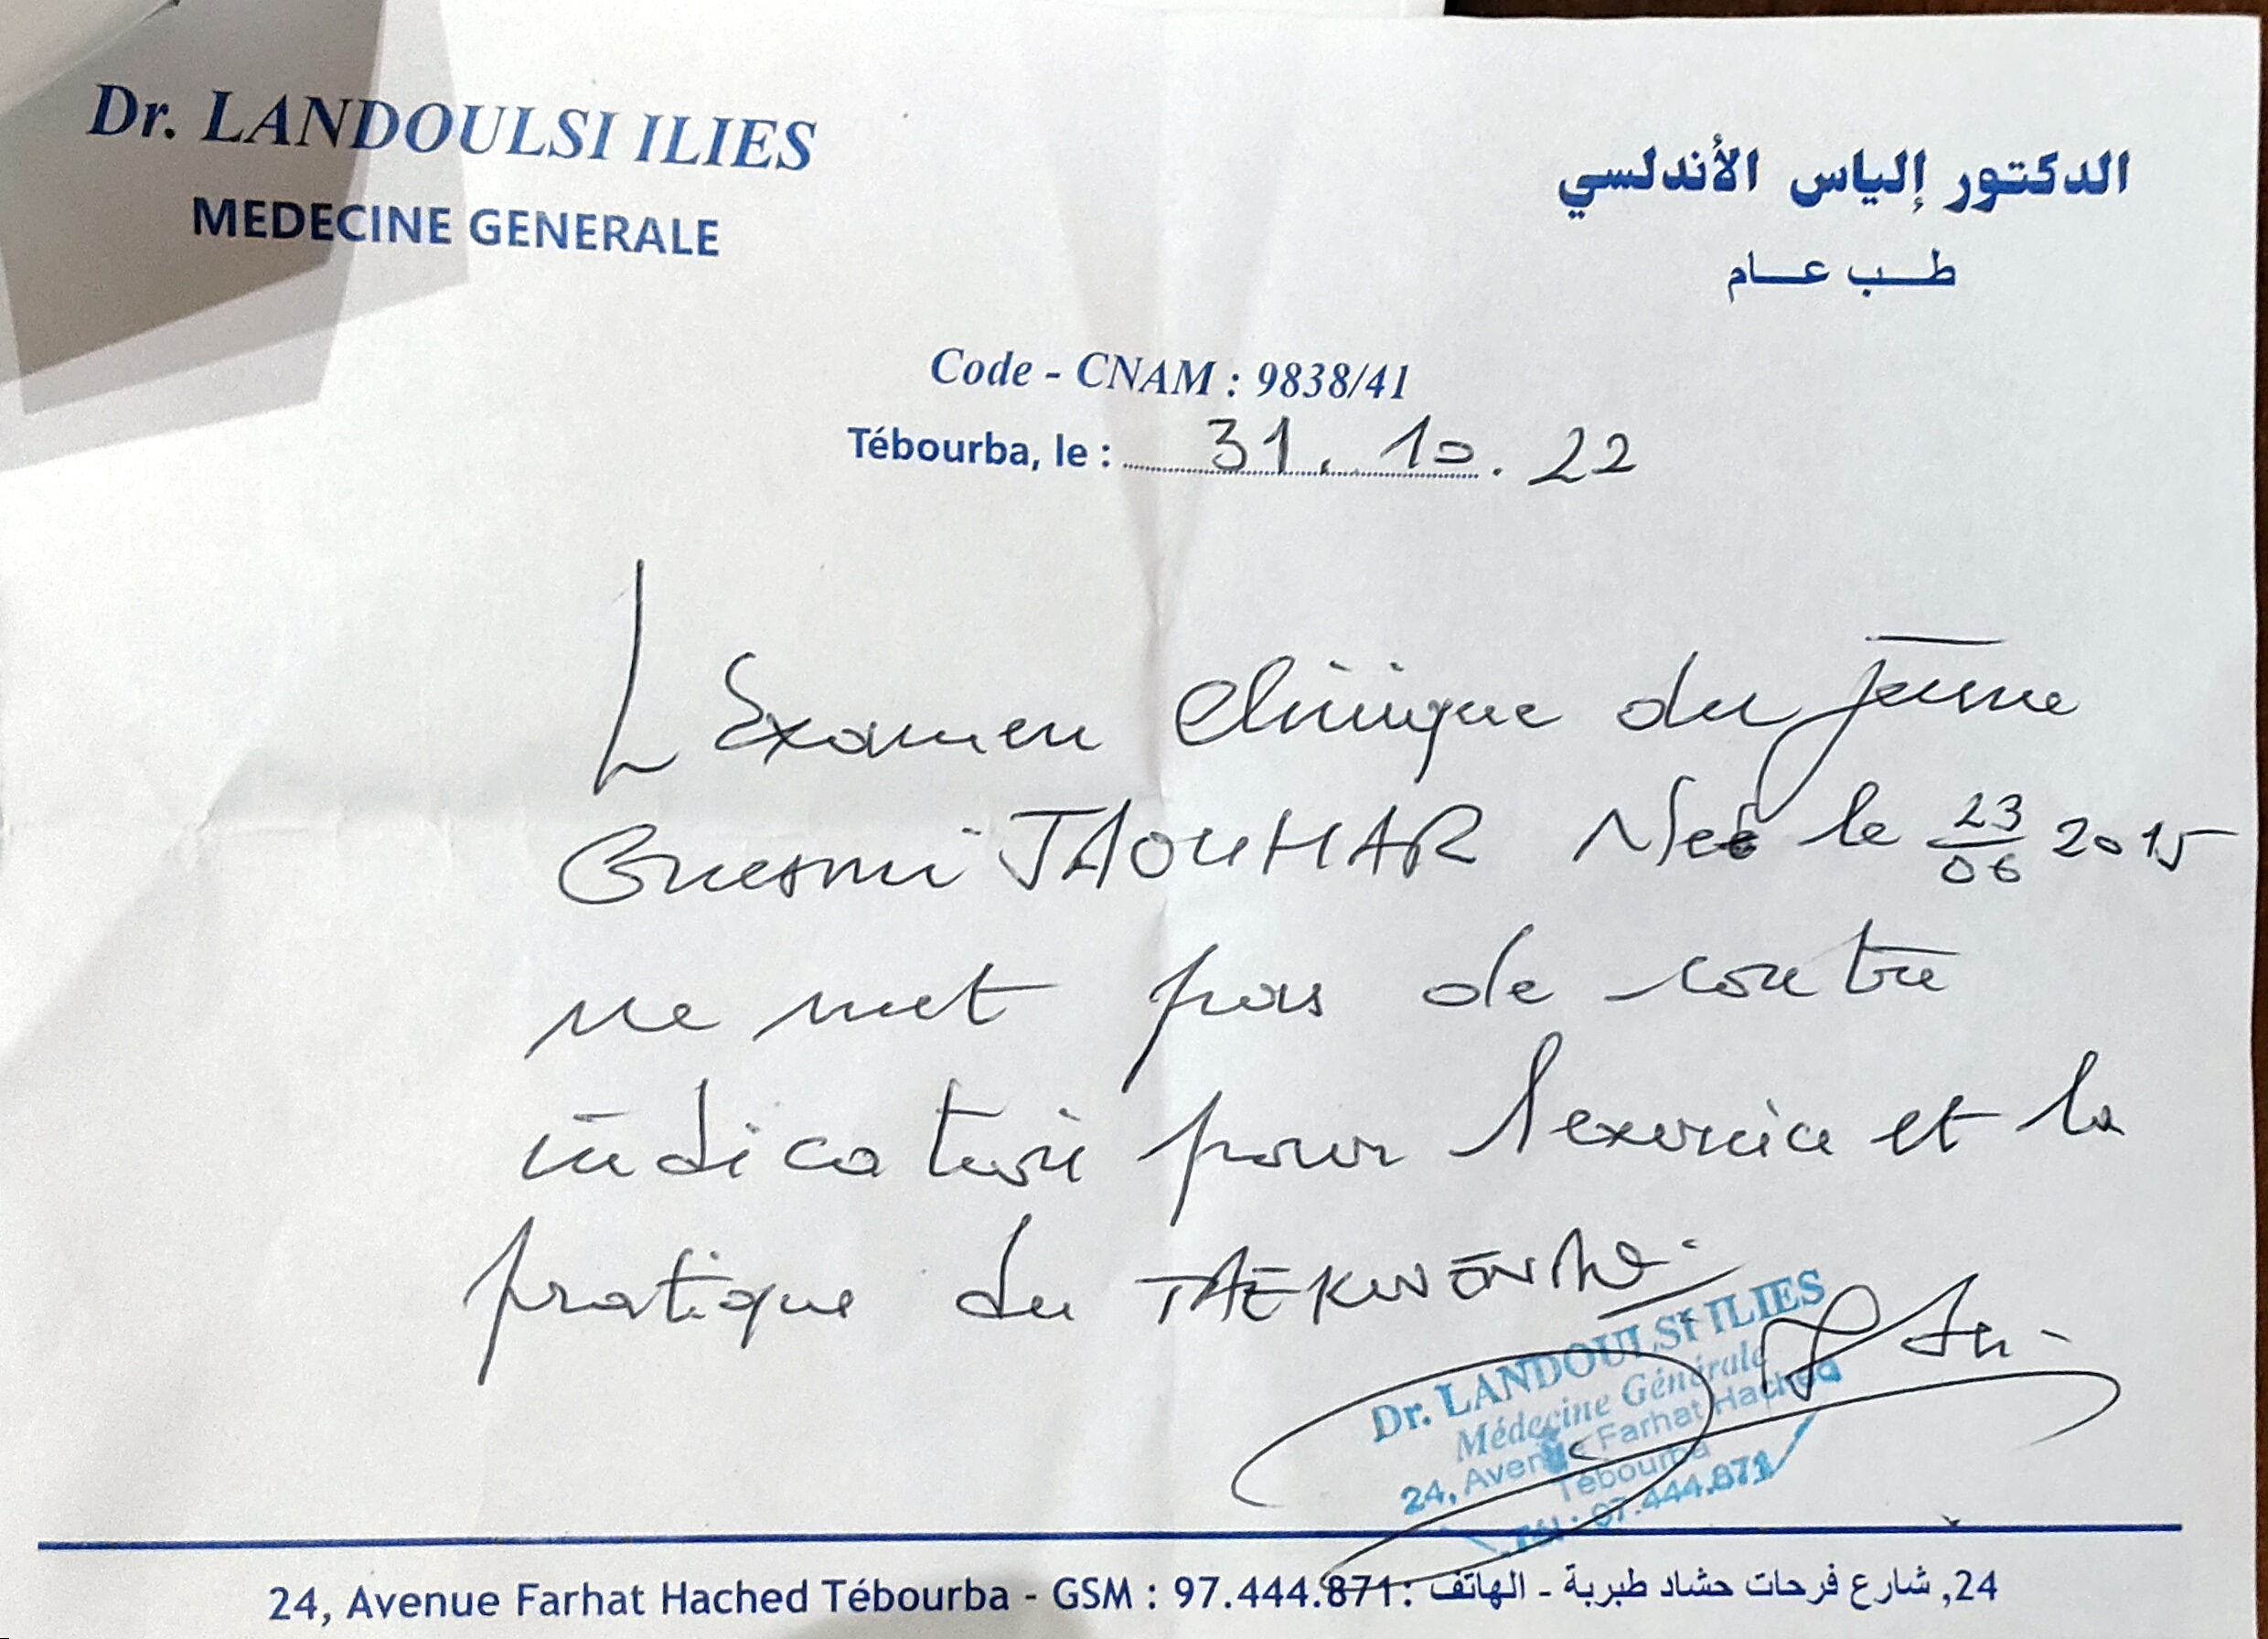 Dr. LANDOULSI ILIES
MEDECINE GENERALE
الدكتور إلياس الأندلسي
طـــب عـــام
Code - CNAM : 9838/41
Tébourba, le : 31. 10. 22
L Examen Clinique du jeune
Guesmi JAOUHAR Née le 23/06 2015
ne met pas de contre
indication pour l'exercice et la
pratique du TAEKWONDO.
Dr. LANDOULSI ILIES
Médecine Générale
24, Avenue Farhat Hached
Tébourba
Tél : 97.444.871
24, Avenue Farhat Hached Tébourba - GSM : 97.444.871 : 24, شارع فرحات حشاد طبربة - الهاتف